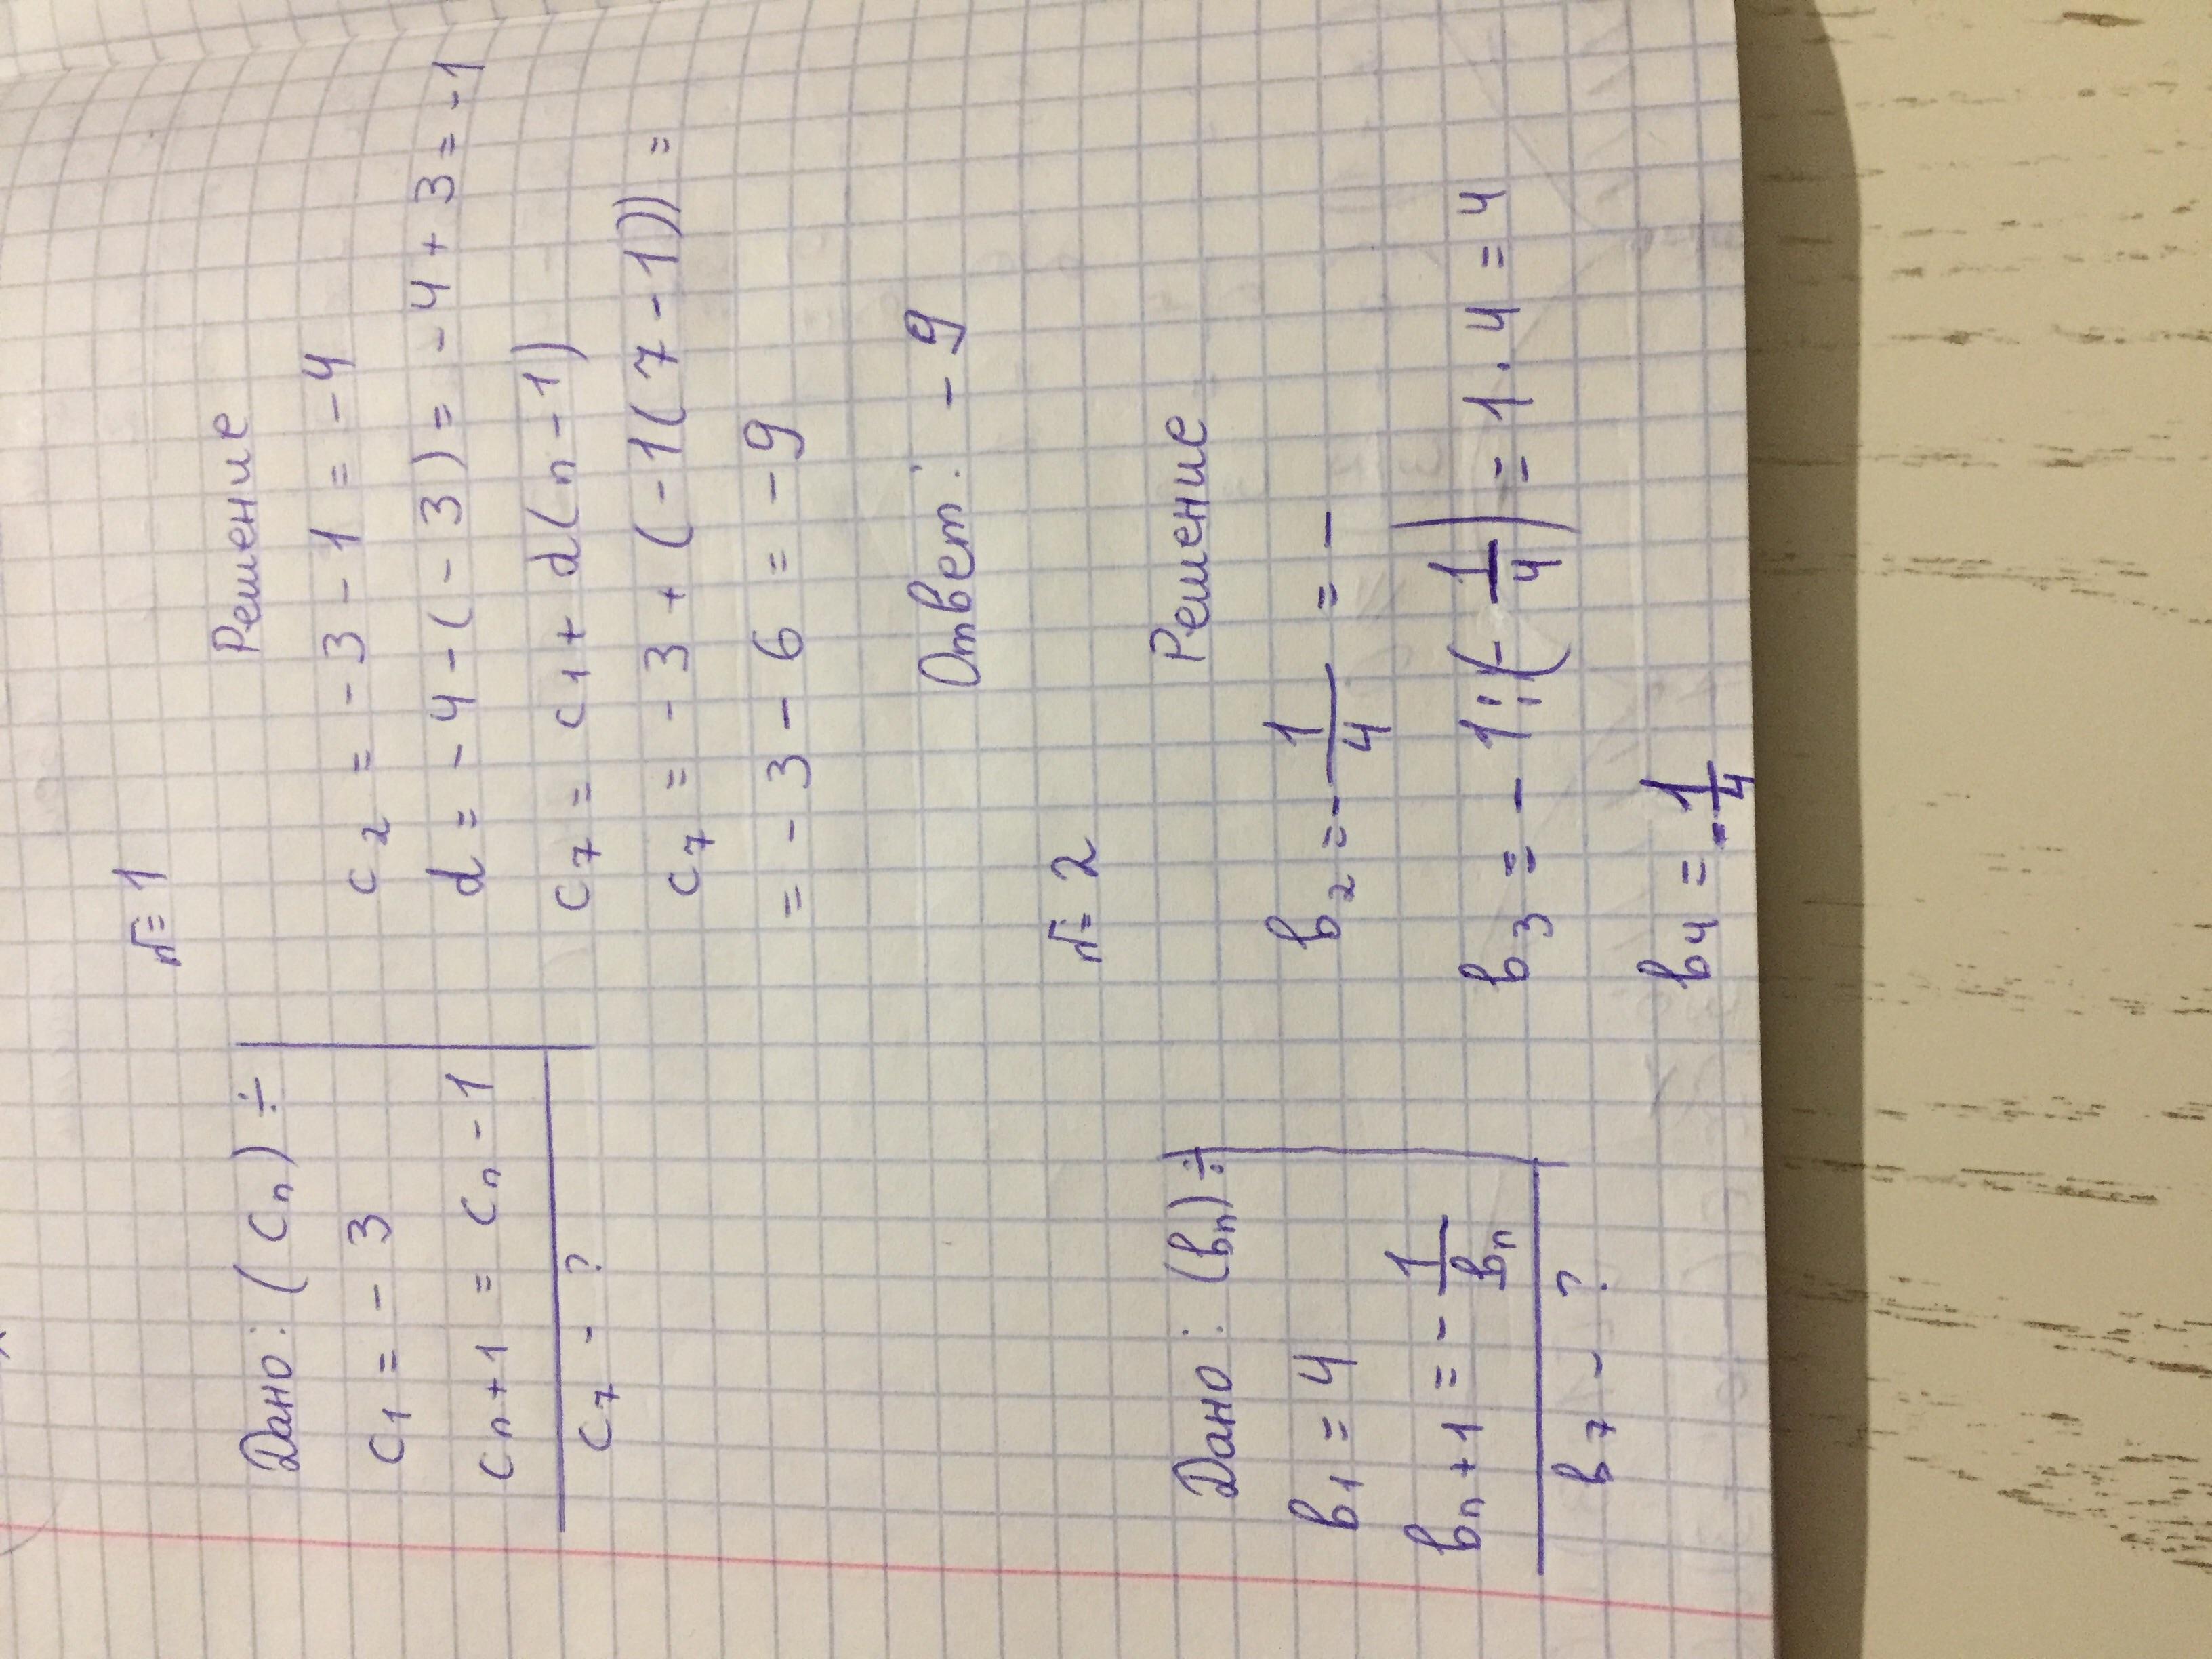 № 1
Дано: (cₙ) ÷
c₁ = - 3
cₙ+1 = cₙ - 1
c₇ - ?
Решение
c₂ = - 3 - 1 = - 4
d = - 4 - (- 3) = - 4 + 3 = - 1
c₇ = c₁ + d(n - 1)
c₇ = - 3 + (- 1(7 - 1))) =
= - 3 - 6 = - 9
Ответ: - 9
№ 2
Дано: (вₙ) ÷
в₁ = 4
вₙ+1 = - 1/вₙ
в₇ - ?
Решение
в₂ = - 1/4 = -
в₃ = - 1 : (- 1/4) = 1 · 4 = 4
в₄ = - 1/4